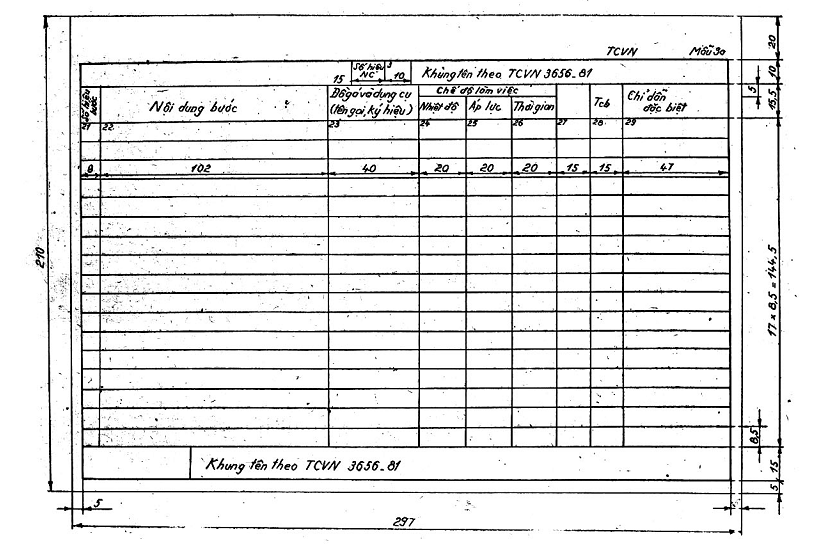 TCVN Mẫu 3a
Số hiệu NC 3
15 10 Khung tên theo TCVN 3656_81
Số hiệu bước
Nội dung bước
Đồ gá và dụng cụ
(tên gọi, ký hiệu)
Chế độ làm việc
Nhiệt độ Áp lực Thời gian
Tcb
Chỉ dẫn
đặc biệt
21 22 23 24 25 26 27 28 29
8 102 40 20 20 20 15 15 47
Khung tên theo TCVN 3656_81
210
297
5
20
10
5
15,5
17 x 8,5 = 144,5
8,5
15
5